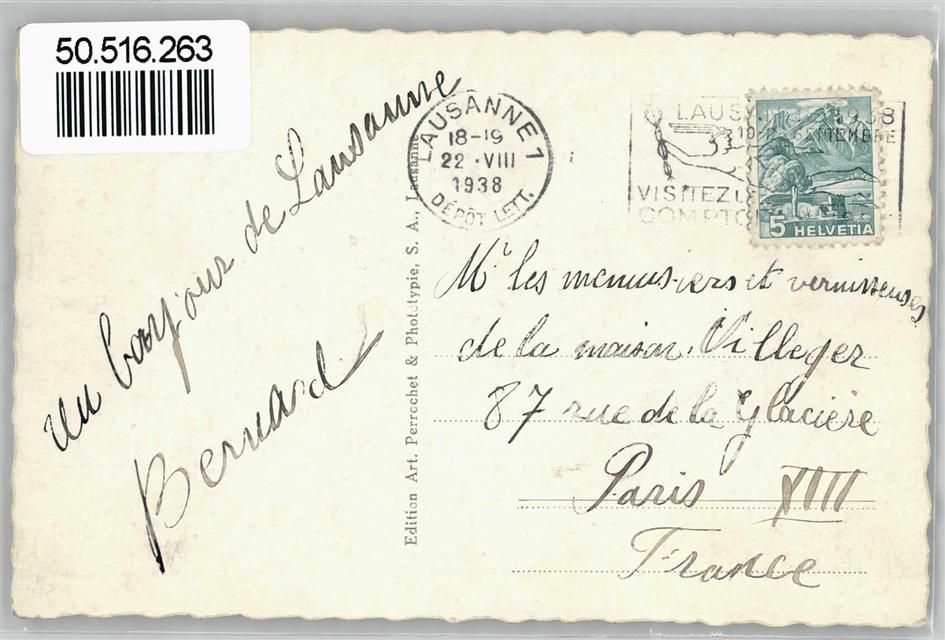 50.516.263
Un bonjour de Lausanne
Bernard
Edition Art. Perrochet & Phototypie, S. A., Lausanne
LAUSANNE 1
18-19
22 · VIII
1938
DÉPÔT LETT.
LAUS
8
SEPTEMBRE
VISITEZ L
COMPTO
5 HELVETIA
Mr les menusiers et vernisseuses
de la maison Villeger
87 rue de la Glacière
Paris XIII
France